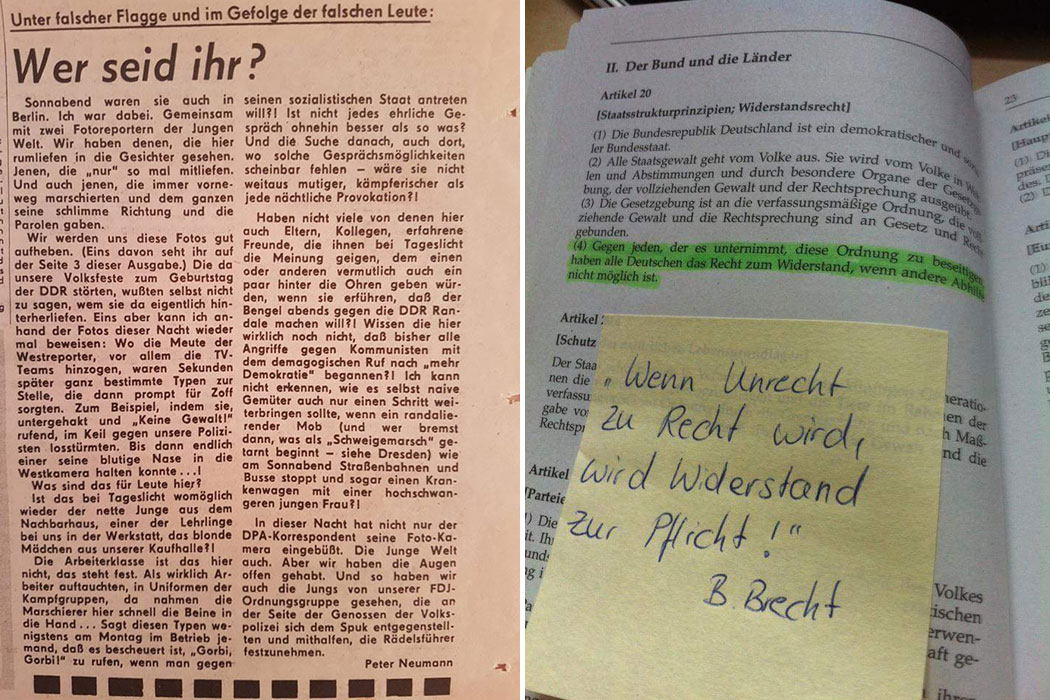 Unter falscher Flagge und im Gefolge der falschen Leute:
Wer seid ihr?
Sonnabend waren sie auch in
Berlin. Ich war dabei. Gemeinsam
mit zwei Fotoreportern der Jungen
Welt. Wir haben denen, die hier
rumliefen in die Gesichter gesehen.
Jenen, die „nur" so mal mitliefen.
Und auch jenen, die immer vorne-
weg marschierten und dem ganzen
seine schlimme Richtung und die
Parolen gaben.
Wir werden uns diese Fotos gut
aufheben. (Eins davon seht ihr auf
der Seite 3 dieser Ausgabe.) Die da
unsere Volksfeste zum Geburtstag
der DDR störten, wußten selbst nicht
zu sagen, wem sie da eigentlich hin-
terherliefen. Eins aber kann ich an-
hand der Fotos dieser Nacht wieder
mal beweisen: Wo die Meute der
Westreporter, vor allem die TV-
Teams hinzogen, waren Sekunden
später ganz bestimmte Typen zur
Stelle, die dann prompt für Zoff
sorgten. Zum Beispiel, indem sie,
untergehakt und „Keine Gewalt!"
rufend, im Keil gegen unsere Polizi-
sten losstürmten. Bis dann endlich
einer seine blutige Nase in die
Westkamera halten konnte ...!
Was sind das für Leute hier?
Ist das bei Tageslicht womöglich
wieder der nette Junge aus dem
Nachbarhaus, einer der Lehrlinge
bei uns in der Werkstatt, das blonde
Mädchen aus unserer Kaufhalle?!
Die Arbeiterklasse ist das hier
nicht, das steht fest. Als wirklich Ar-
beiter auftauchten, in Uniformen der
Kampfgruppen, da nahmen die
Marschierer hier schnell die Beine in
die Hand ... Sagt diesen Typen we-
nigstens am Montag im Betrieb je-
mand, daß es bescheuert ist, „Gorbi,
Gorbi!" zu rufen, wenn man gegen
seinen sozialistischen Staat antreten
will?! Ist nicht jedes ehrliche Ge-
spräch ohnehin besser als so was?
Und die Suche danach, auch dort,
wo solche Gesprächsmöglichkeiten
scheinbar fehlen – wäre sie nicht
weitaus mutiger, kämpferischer als
jede nächtliche Provokation?!
Haben nicht viele von denen hier
auch Eltern, Kollegen, erfahrene
Freunde, die ihnen bei Tageslicht
die Meinung geigen, dem einen
oder anderen vermutlich auch ein
paar hinter die Ohren geben wür-
den, wenn sie erführen, daß der
Bengel abends gegen die DDR Ran-
dale machen will?! Wissen die hier
wirklich noch nicht, daß bisher alle
Angriffe gegen Kommunisten mit
dem demagogischen Ruf nach „mehr
Demokratie" begannen?! Ich kann
nicht erkennen, wie es selbst naive
Gemüter auch nur einen Schritt wei-
terbringen sollte, wenn ein randalie-
render Mob (und wer bremst
dann, was als „Schweigemarsch" ge-
tarnt beginnt – siehe Dresden) wie
am Sonnabend Straßenbahnen und
Busse stoppt und sogar einen Kran-
kenwagen mit einer hochschwan-
geren jungen Frau?!
In dieser Nacht hat nicht nur der
DPA-Korrespondent seine Foto-Ka-
mera eingebüßt. Die Junge Welt
auch. Aber wir haben die Augen
offen gehabt. Und so haben wir
auch die Jungs von unserer FDJ-
Ordnungsgruppe gesehen, die an
der Seite der Genossen der Volks-
polizei sich dem Spuk entgegenstell-
ten und mithalfen, die Rädelsführer
festzunehmen.
Peter Neumann
II. Der Bund und die Länder
Artikel 20
[Staatsstrukturprinzipien; Widerstandsrecht]
(1) Die Bundesrepublik Deutschland ist ein demokratischer und
ler Bundesstaat.
(2) Alle Staatsgewalt geht vom Volke aus. Sie wird vom Volke in
len und Abstimmungen und durch besondere Organe der
bung, der vollziehenden Gewalt und der Rechtsprechung ausgeübt.
(3) Die Gesetzgebung ist an die verfassungsmäßige Ordnung, die
ziehende Gewalt und die Rechtsprechung sind an Gesetz und
gebunden.
(4) Gegen jeden, der es unternimmt, diese Ordnung zu beseitigen,
haben alle Deutschen das Recht zum Widerstand, wenn andere Abhilfe
nicht möglich ist.
Artikel
[Schutz
Der Staa
nen die
verfassu
gabe vo
Rechtsp
eneratio-
en der
h Maß-
nd die
Artikel
[Parteie
) Die
t. Ih
und
Volkes
ischen
erwen-
aft ge-
„Wenn Unrecht
zu Recht wird,
wird Widerstand
zur Pflicht!"
B. Brecht
23